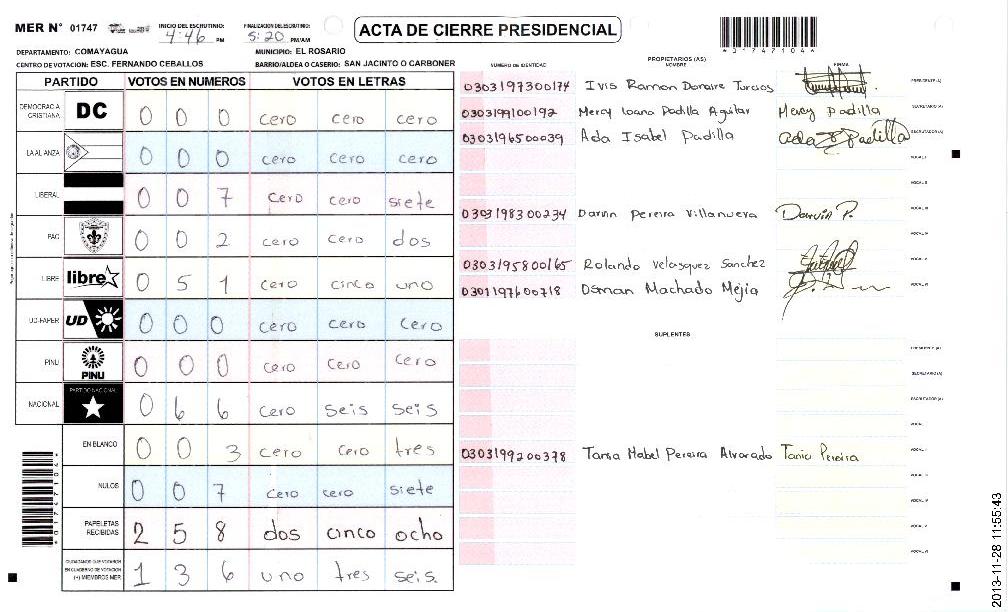 MER N° 01747
INICIO DEL ESCRUTINIO: 4:46 PM
FINALIZACION DEL ESCRUTINIO: 5:20 PM/AM
ACTA DE CIERRE PRESIDENCIAL
DEPARTAMENTO: COMAYAGUA
MUNICIPIO: EL ROSARIO
CENTRO DE VOTACION: ESC. FERNANDO CEBALLOS
BARRIO/ALDEA O CASERIO: SAN JACINTO O CARBONER
PARTIDO VOTOS EN NUMEROS VOTOS EN LETRAS
DEMOCRACIA CRISTIANA DC 0 0 0 cero cero cero
LA ALIANZA 0 0 0 cero cero cero
LIBERAL 0 0 7 cero cero siete
PAC 0 0 2 cero cero dos
LIBRE libre 0 5 1 cero cinco uno
UD-FAPER UD 0 0 0 cero cero cero
PINU PINU 0 0 0 cero cero cero
NACIONAL PARTIDO NACIONAL 0 6 6 cero seis seis
EN BLANCO 0 0 3 cero cero tres
NULOS 0 0 7 cero cero siete
PAPELETAS RECIBIDAS 2 5 8 dos cinco ocho
CIUDADANOS QUE VOTARON EN CUADERNO DE VOTACION (+) MIEMBROS MER 1 3 6 uno tres seis
NUMERO DE IDENTIDAD PROPIETARIOS (AS) NOMBRE FIRMA
0303197300174 Ivis Ramon Donaire Turcios PRESIDENTE(A)
0303199100192 Mercy Ioana Padilla Aguilar Mercy Padilla SECRETARIO(A)
0303196500039 Ada Isabel Padilla Ada I Padilla ESCRUTADOR(A)
VOCAL I
VOCAL II
0303198300234 Darvin Pereira Villanueva Darvin P. VOCAL III
VOCAL IV
0303195800165 Rolando Velasquez Sanchez VOCAL V
0301197600718 Osman Machado Mejia VOCAL VI
SUPLENTES
PRESIDENTE(A)
SECRETARIO(A)
ESCRUTADOR(A)
VOCAL I
0303199200378 Tania Mabel Pereira Alvarado Tania Pereira
VOCAL III
VOCAL IV
VOCAL V
VOCAL VI
*01747104*
2013-11-28 11:55:43